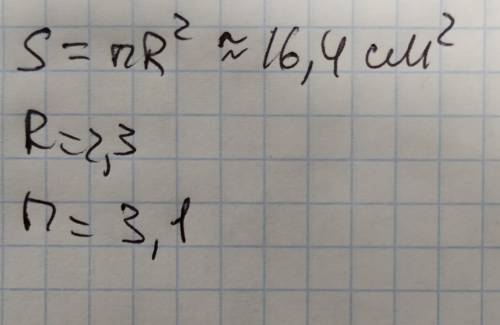 S = πR² ≈ 16,4 см²
R = 2,3
π = 3,1